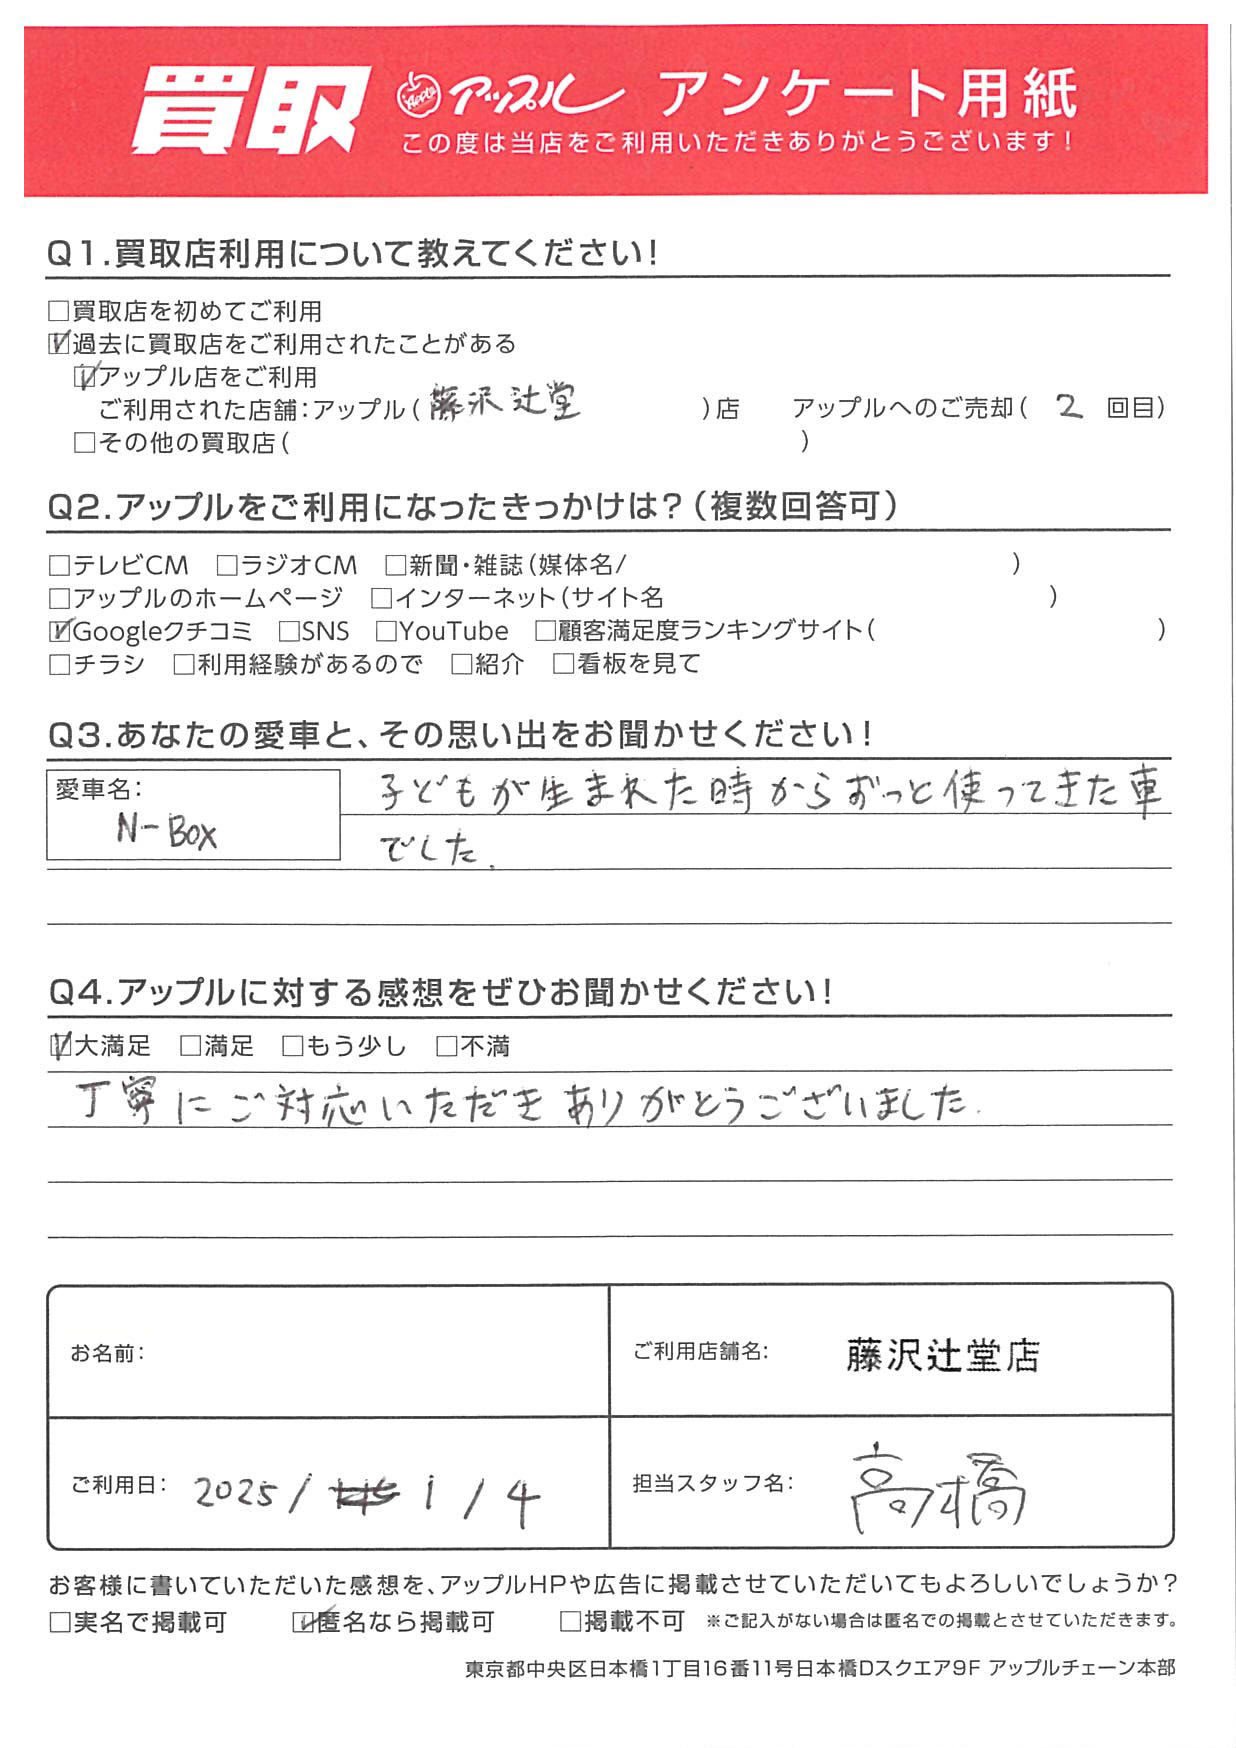 買取 Apple アップル アンケート用紙
この度は当店をご利用いただきありがとうございます!
Q1.買取店利用について教えてください!
□買取店を初めてご利用
☑過去に買取店をご利用されたことがある
☑アップル店をご利用
ご利用された店舗:アップル(藤沢辻堂)店 アップルへのご売却(2回目)
□その他の買取店( )
Q2.アップルをご利用になったきっかけは?(複数回答可)
□テレビCM □ラジオCM □新聞・雑誌(媒体名/ )
□アップルのホームページ □インターネット(サイト名 )
☑Googleクチコミ □SNS □YouTube □顧客満足度ランキングサイト( )
□チラシ □利用経験があるので □紹介 □看板を見て
Q3.あなたの愛車と、その思い出をお聞かせください!
愛車名:
N-Box
子どもが生まれた時からずっと使ってきた車
でした.
Q4.アップルに対する感想をぜひお聞かせください!
☑大満足 □満足 □もう少し □不満
丁寧にご対応いただきありがとうございました.
お名前:
ご利用店舗名: 藤沢辻堂店
ご利用日: 2025/ 1/4
担当スタッフ名: 高橋
お客様に書いていただいた感想を、アップルHPや広告に掲載させていただいてもよろしいでしょうか?
□実名で掲載可 ☑匿名なら掲載可 □掲載不可 ※ご記入がない場合は匿名での掲載とさせていただきます。
東京都中央区日本橋1丁目16番11号日本橋Dスクエア9F アップルチェーン本部